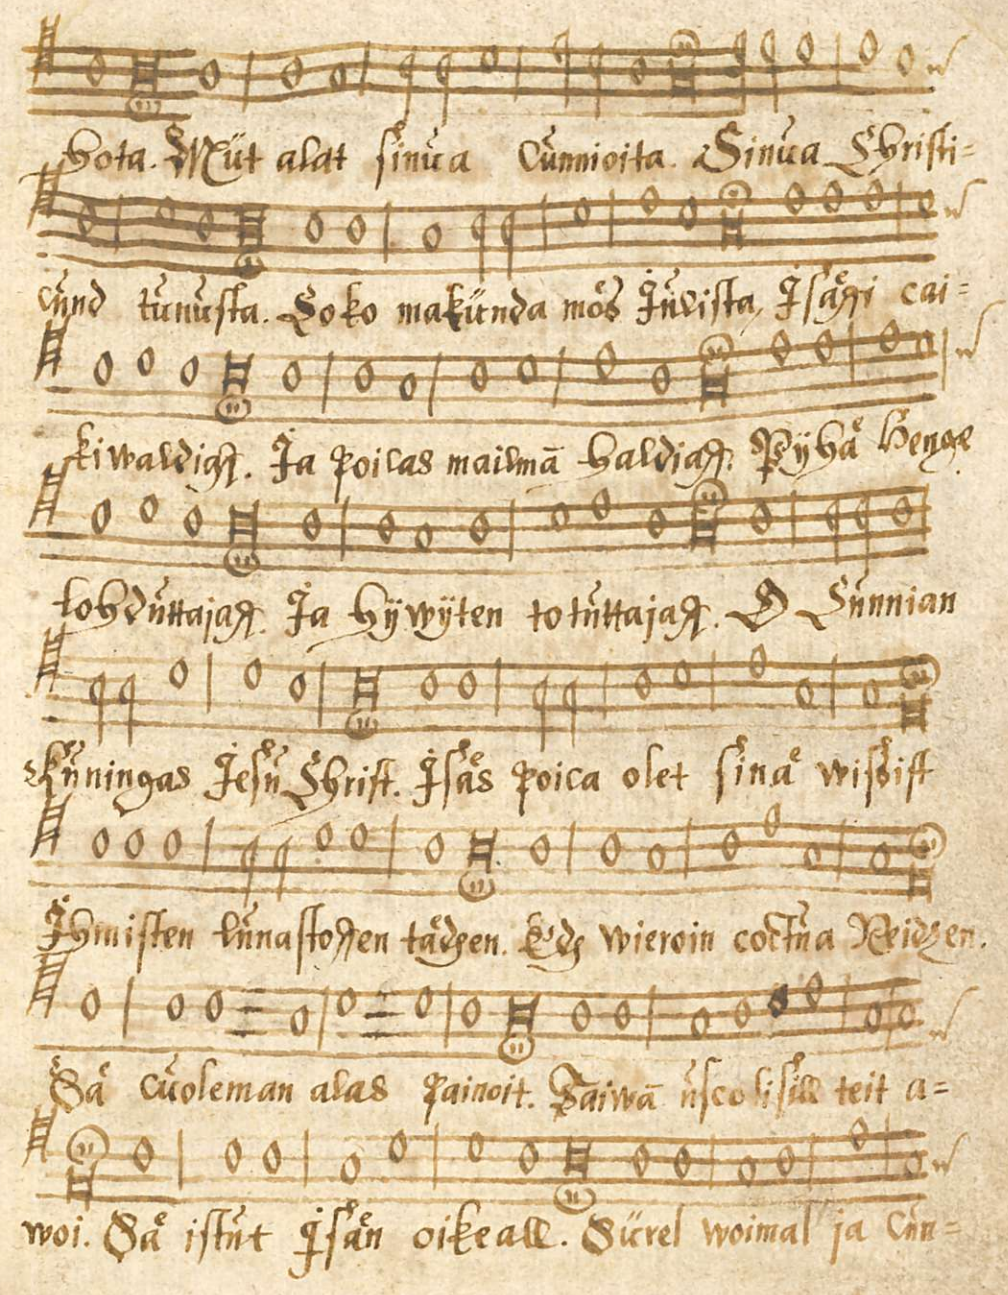 hota. Müt alat sinŭa Cŭnnioita. Sinŭa Christi=
cŭnd tŭnŭsta. Coko makŭnda mös Jŭlista, Jsäṅi cai=
kiwaldiaṅ. Ja poilas mailmā haldiaṅ. Pÿhä Henge
lohdŭttajaṅ. Ja hÿwÿten totŭttajaṅ. O Cŭnnian
Kŭningas Jesŭ Christ. Jsäs poica olet sinä wissist
Jhmisten lŭnastoṅen tädhen. Edh wieroin coctŭa Neidzen.
Sä cŭoleman alas painoit. Taiwā ŭscolisill teit a=
woi. Sä istŭt Jsän oikeall. Sŭrel woimal ja Cŭn=